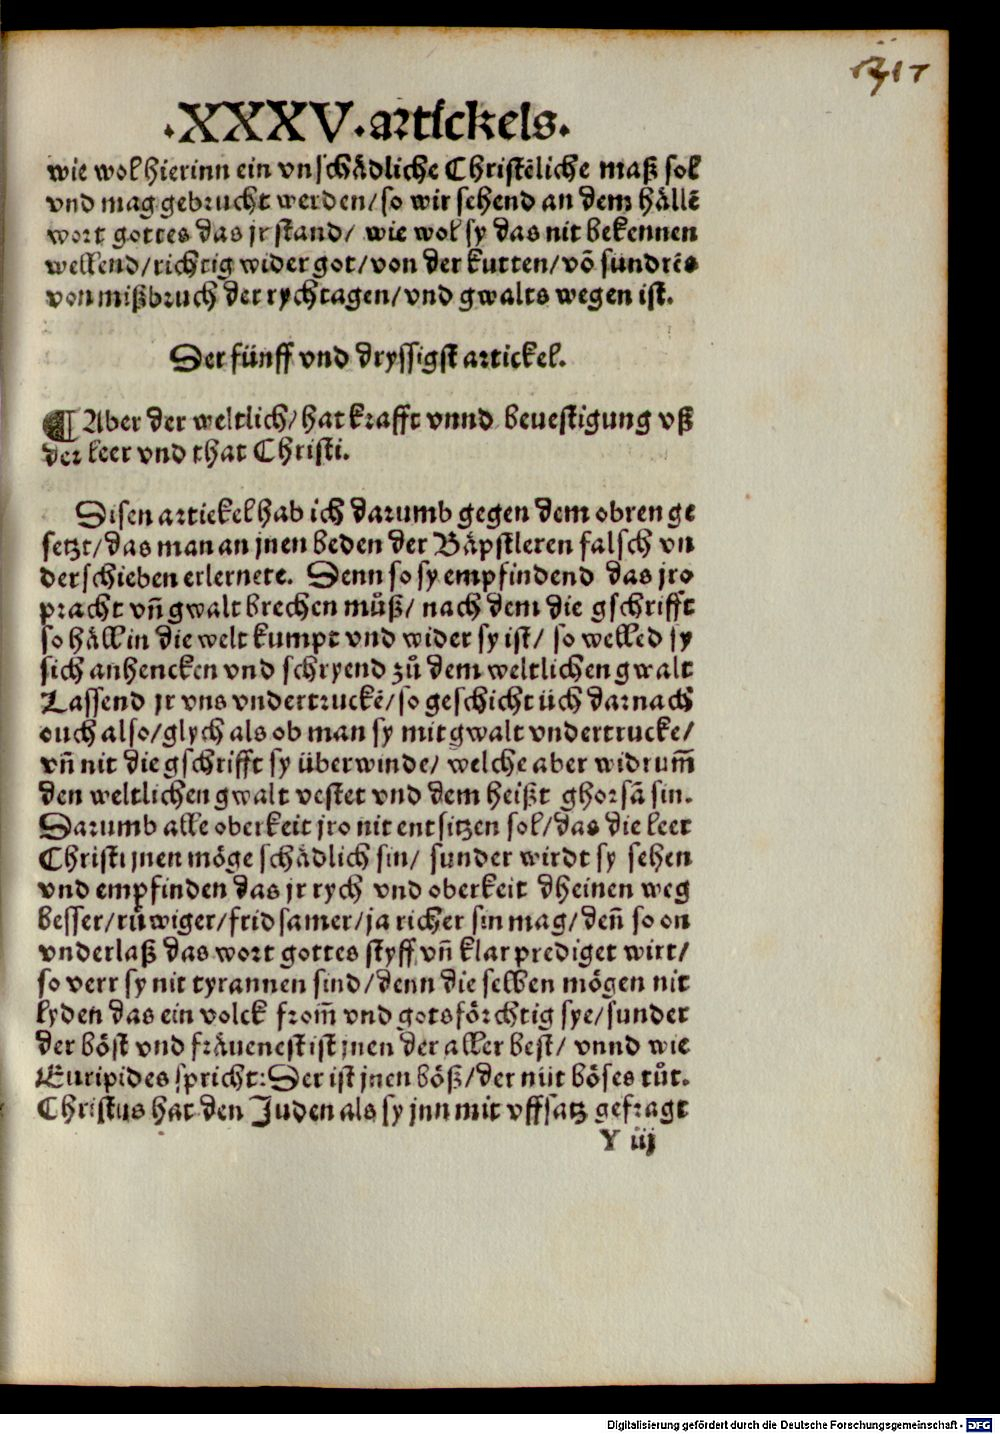 .XXXV.artickels.
wie wol hierinn ein vnschådliche Christēliche maß sol
vnd mag gebrucht werden/ so wir sehend an dem hållē
wort gottes das jr stand/ wie wol sy das nit bekennen
wellend/ richtig wider got/ von der kutten/ võ sundrēs
von mißbruch der rychtagen/ vnd gwalts wegen ist.
Der fünff vnd dryssigst artickel.
¶ Aber der weltlich/ hat krafft vnnd beuestigung vß
der leer vnd that Christi.
Disen artickel hab ich darumb gegen dem obren ge
setzt/ das man an jnen beden der Båpstleren falsch vn
derschieben erlernete. Denn so sy empfindend das jro
pracht vñ gwalt brechen můß/ nach dem die gschrifft
so håll in die welt kumpt vnd wider sy ist/ so welled sy
sich anhencken vnd schryend zů dem weltlichen gwalt
Lassend jr vns vndertruckē/ so geschicht üch darnach
ouch also/ glych als ob man sy mit gwalt vndertrucke/
vñ nit die gschrifft sy überwinde/ welche aber widrum̃
den weltlichen gwalt vestet vnd dem heißt ghorsã sin.
Darumb alle oberkeit jro nit entsitzen sol/ das die leer
Christi jnen möge schådlich sin/ sunder wirdt sy sehen
vnd empfinden das jr rych vnd oberkeit dheinen weg
besser/ růwiger/ fridsamer/ ja richer sin mag/ deñ so on
vnderlaß das wort gottes styff vñ klar prediget wirt/
so verr sy nit tyrannen sind/ denn die selben mögen nit
lyden das ein volck from̃ vnd gotsförchtig sye/ sunder
der böst vnd fråuenest ist jnen der aller best/ vnnd wie
Euripides spricht: Der ist jnen böß/ der nüt böses tůt.
Christus hat den Juden als sy jnn mit vffsatz gefragt
Y iij
Digitalisierung gefördert durch die Deutsche Forschungsgemeinschaft - DFG